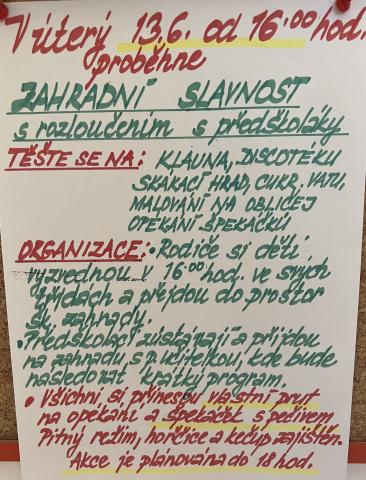 V úterý 13.6. od 16.00 hod.
proběhne
ZAHRADNÍ SLAVNOST
s rozloučením s předškoláky
TĚŠTE SE NA: KLAUNA, DISCOTÉKU
SKÁKACÍ HRAD, CUKR. VATU,
MALOVÁNÍ NA OBLIČEJ
OPÉKÁNÍ ŠPEKÁČKŮ
ORGANIZACE: • Rodiče si děti
vyzvednou v 16.00 hod. ve svých
třídách a přejdou do prostor
šk. zahrady.
• Předškoláci zůstávají a přijdou
na zahradu s p. učitelkou, kde bude
následovat krátký program.
• Všichni si přinesou vlastní prut
na opékání a špekáček s pečivem
Pitný režim, hořčice a kečup zajištěn.
Akce je plánována do 18 hod.